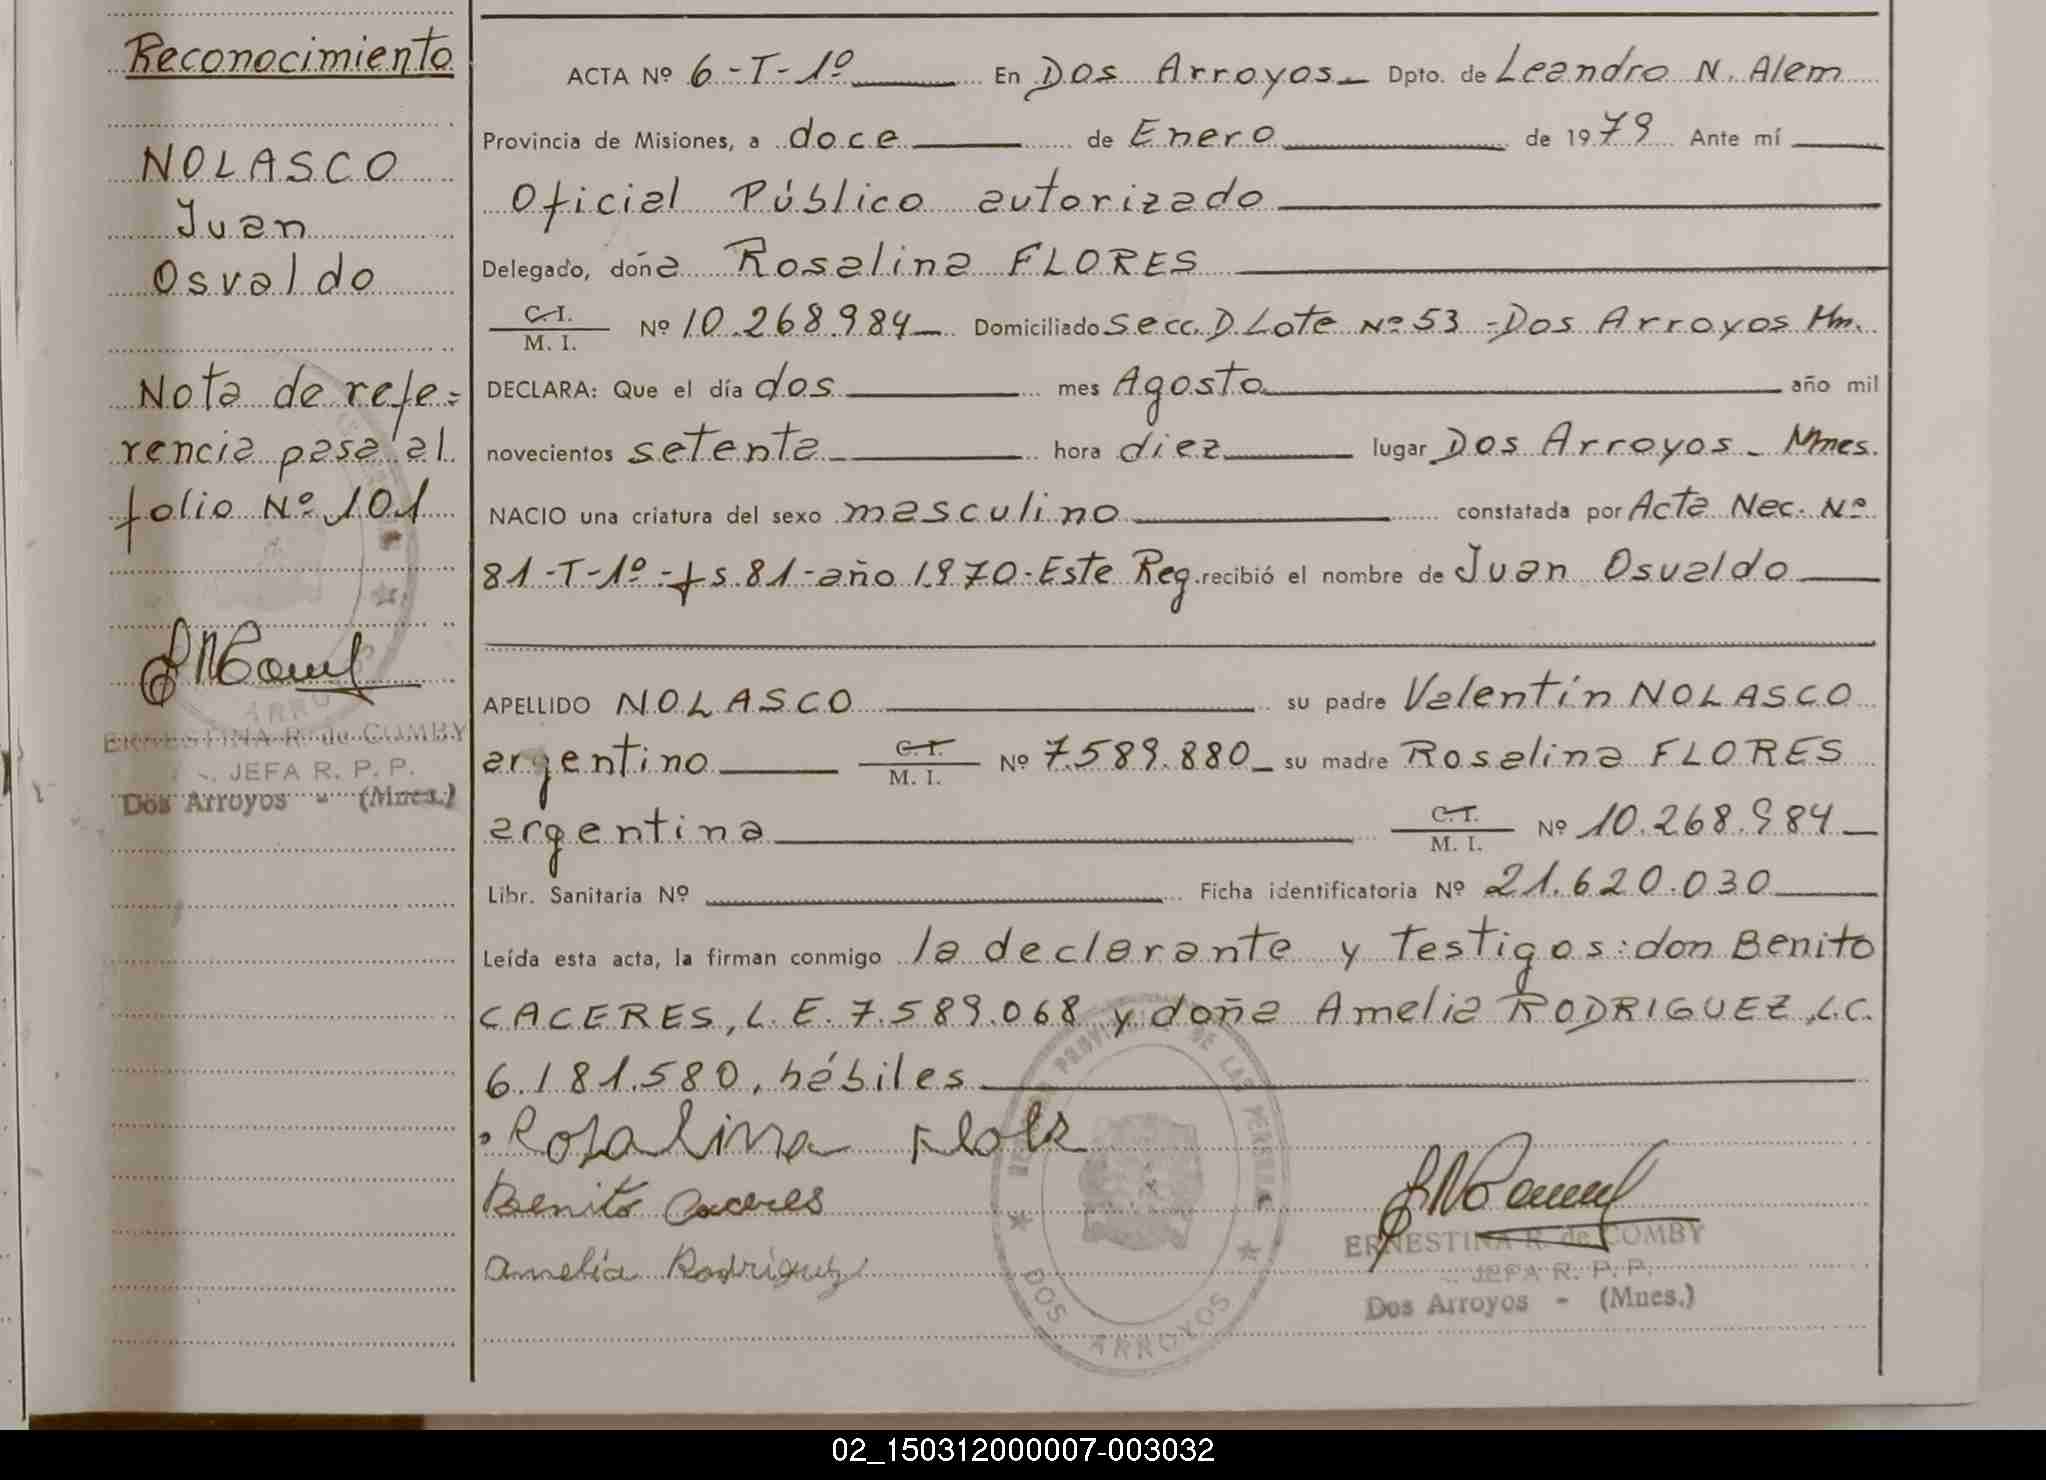 Reconocimiento
NOLASCO
Juan
Osvaldo
Nota de refe=
rencia pasa al
folio Nº 101
ERNESTINA R. de COMBY
JEFA R. P. P.
Dos Arroyos - (Mnes.)
ACTA Nº 6-T-1º En Dos Arroyos Dpto. de Leandro N. Alem
Provincia de Misiones, a doce de Enero de 1979 Ante mí
Oficial Público autorizado
Delegado, doña Rosalina FLORES
C.I.
M. I. Nº 10.268.984 Domiciliado Secc. D. Lote Nº 53 - Dos Arroyos Mn.
DECLARA: Que el día dos mes Agosto año mil
novecientos setenta hora diez lugar Dos Arroyos - Mnes.
NACIO una criatura del sexo masculino constatada por Acta Nac. Nº
81-T-1º-fs.81-año 1970-Este Reg. recibió el nombre de Juan Osvaldo
APELLIDO NOLASCO su padre Valentín NOLASCO
argentino C.I.
M. I. Nº 7.589.880 su madre Rosalina FLORES
argentina C.I.
M. I. Nº 10.268.984
Libr. Sanitaria Nº Ficha identificatoria Nº 21.620.030
Leída esta acta, la firman conmigo la declarante y testigos: don Benito
CACERES, L.E. 7.589.068 y doña Amelia RODRIGUEZ, L.C.
6.181.580, hábiles
Rosalina Flores
Benito Caceres
Amelia Rodriguez
ERNESTINA R. de COMBY
JEFA R. P. P.
Dos Arroyos - (Mnes.)
DOS ARROYOS
02_150312000007-003032